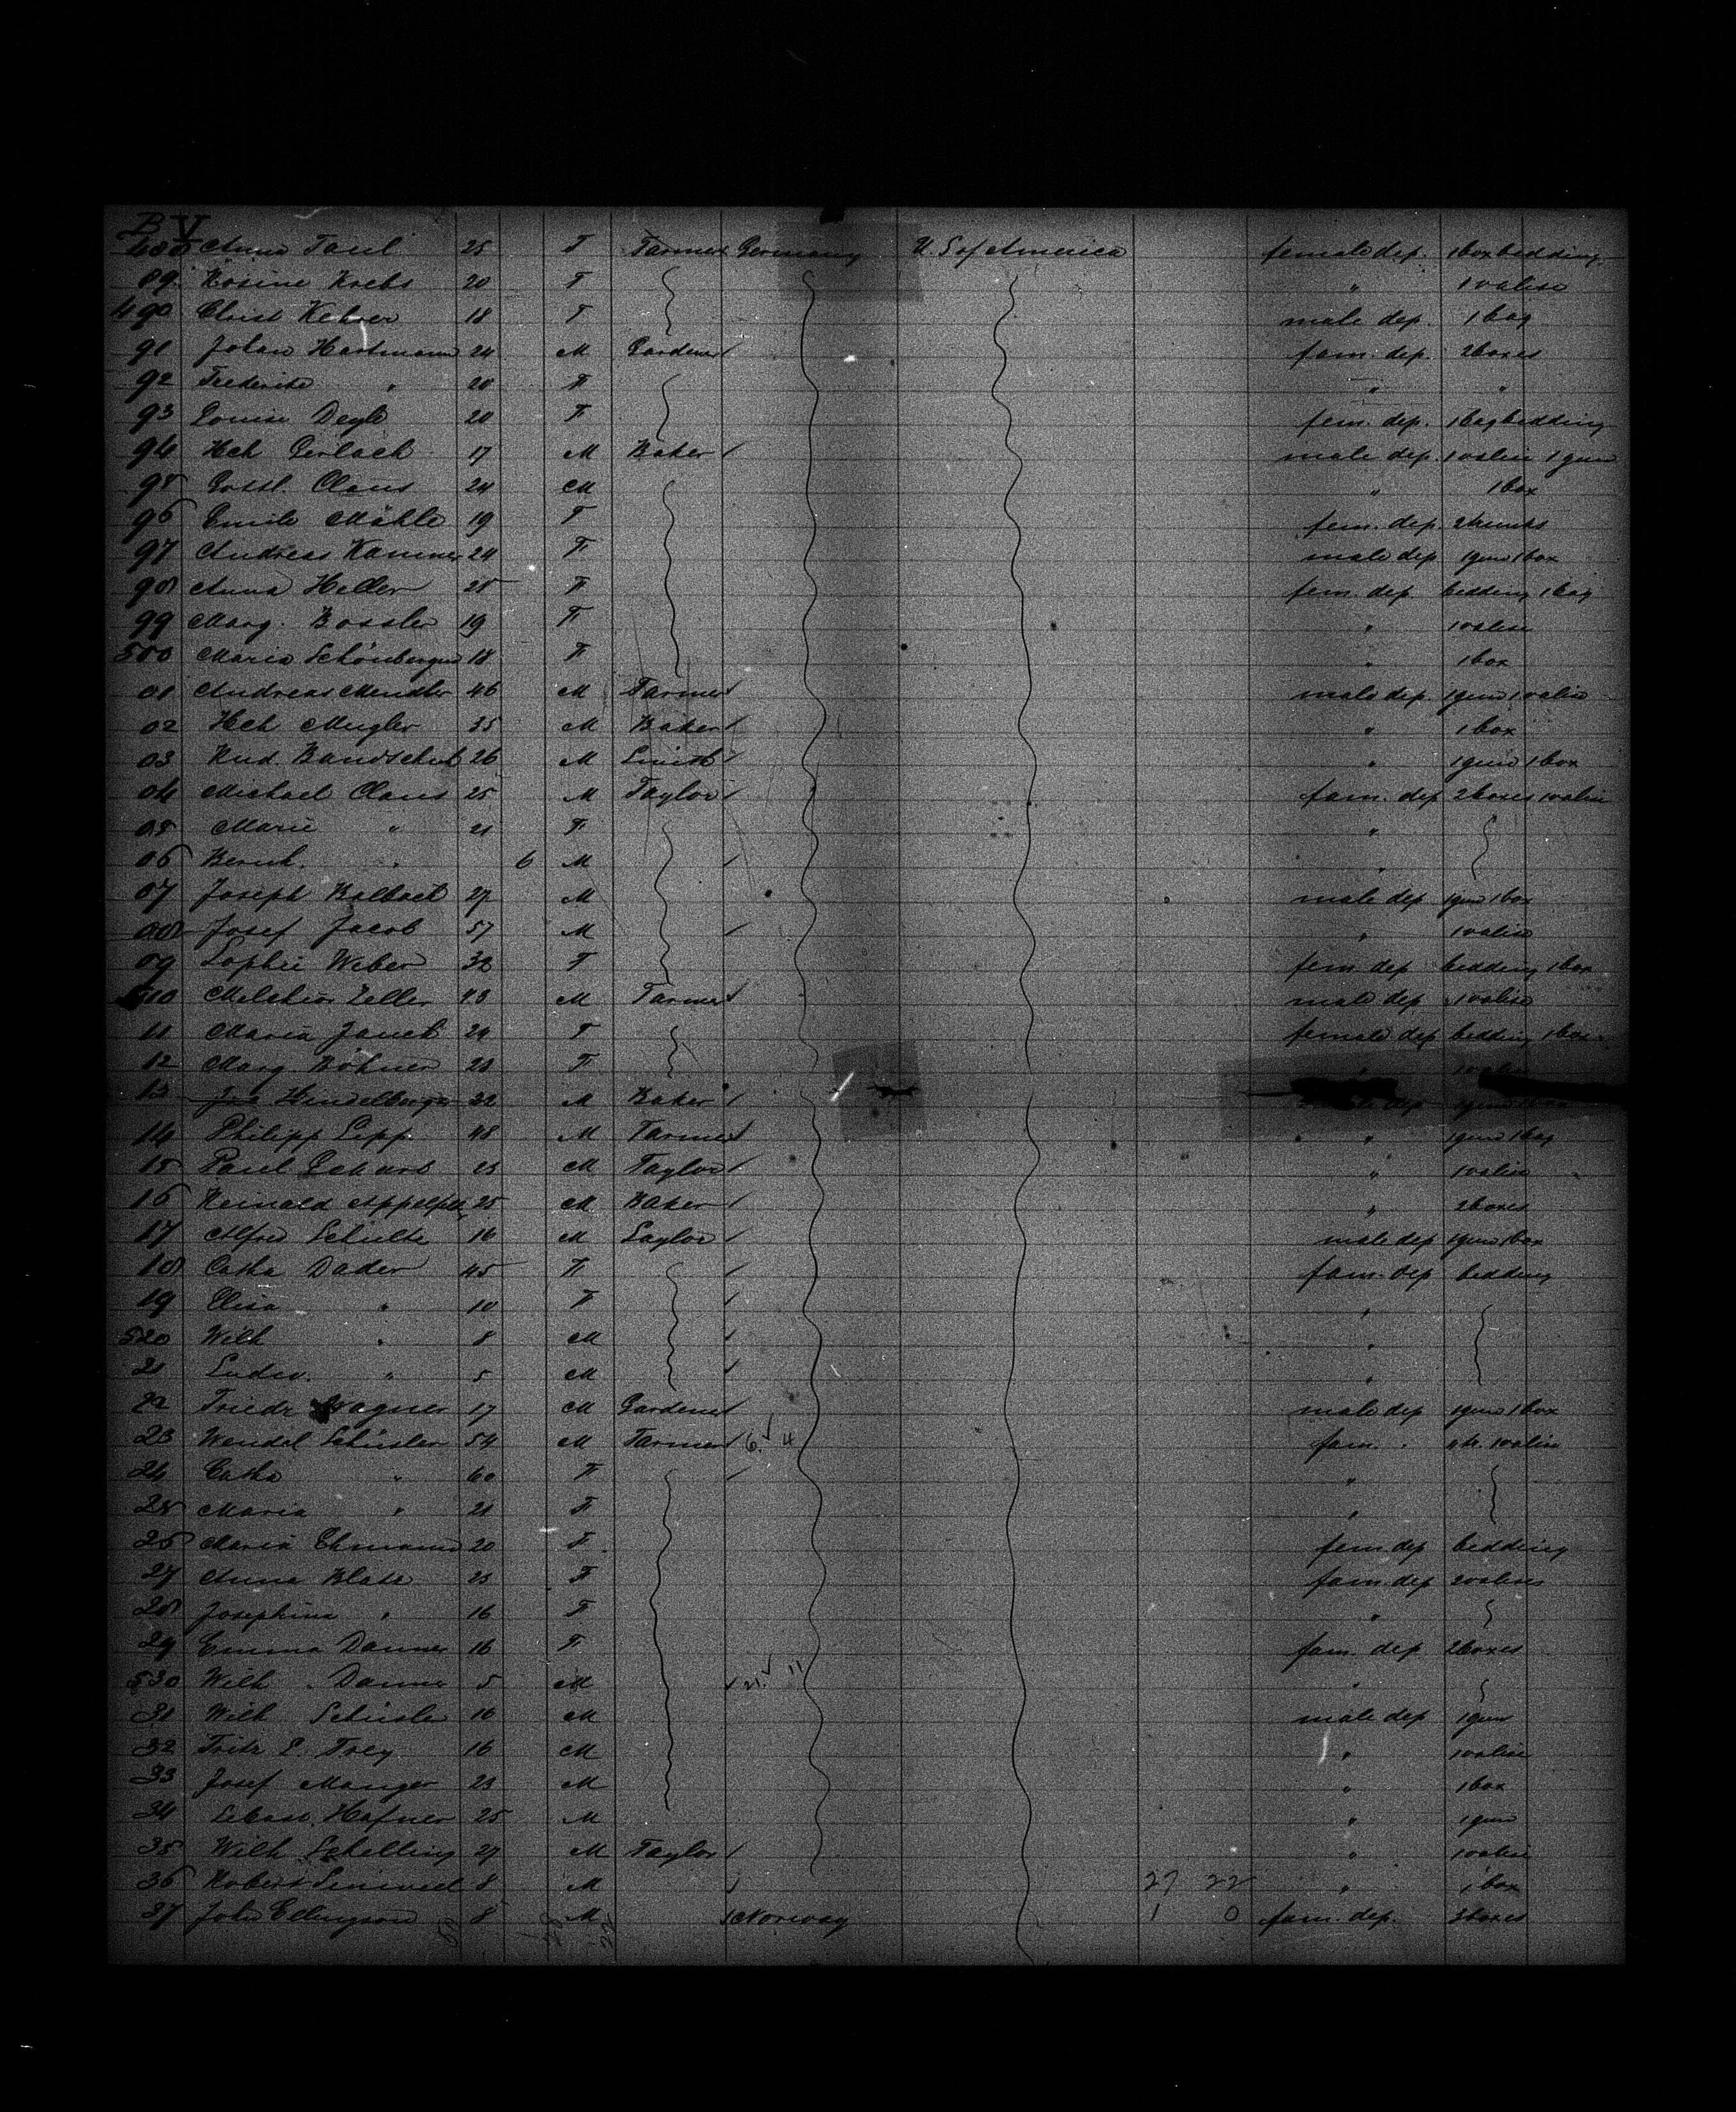 B V
488 Anna Paul 25 F Farmer Germany U. S of America female dep. 1 box bedding
89 Rosine Krebs 20 F " 1 valise
490 Christ Kehrer 18 F male dep. 1 bag
91 Johan Hartmann 24 M Gardener fam. dep. 2 boxes
92 Frederike " 20 F " "
93 Louise Degle 20 F fem. dep. 1 bag bedding
94 Hch Gerlach 17 M Baker male dep. 1 valise 1 gun
95 Gottl. Claus 24 M " 1 box
96 Emile Mähle 19 F fem. dep. 2 trunks
97 Andreas Kammer 24 F male dep 1 gun 1 box
98 Anna Heller 25 F fem. dep. bedding 1 bag
99 Marg. Bossler 19 F " 1 valise
500 Maria Schönberger 18 F " 1 box
01 Andreas Mendler 46 M Farmer male dep. 1 gun 1 valise
02 Hch Mugler 35 M Baker " 1 box
03 Rud. Bandschuh 26 M Smith " 1 gun 1 box
04 Michael Claus 25 M Taylor fam. dep 2 boxes 1 valise
05 Marie " 21 F "
06 Bernh. " 6 M "
07 Joseph 27 M male dep 1 gun 1 box
08 Josef Jacob 57 M " 1 valise
09 Sophie Weber 32 F fem dep bedding 1 box
510 Melchior Zeller 43 M Farmer male dep 1 valise
11 Maria Janek 24 F female dep bedding 1 box
12 Marg. Böhner 23 F " 1 valise
13 Hindelberger 22 M Baker male dep
14 Philipp Lipp 48 M Farmer " 1 gun 1 bag
15 Paul 23 M Taylor " 1 valise
16 Reinald 25 M Baker " 2 boxes
17 Alfred Schulte 16 M Saylor male dep 1 gun 1 box
18 Catha Dader 45 F fam. dep bedding
19 Elisa " 10 F "
520 Wilh " 8 M "
21 Ludw. " 5 M "
22 Friedr Wagner 17 M Gardener male dep 1 gun 1 box
23 Wendel Schüsler 54 M Farmer 6 4 fam. " 1 valise
24 Catha " 60 F "
25 Maria " 21 F "
26 Maria Ehmann 20 F fem. dep bedding
27 Anna Blatz 23 F fam. dep 2 valises
28 Josephina " 16 F "
29 Emma Danner 16 F fam. dep 2 boxes
530 Wilh. Danner 5 M 21. 11 "
31 Wilh Schüsler 16 M male dep 1 gun
32 Fritz E. Frey 16 M " 1 valise
33 Josef Manger 23 M " 1 box
34 Sebast. Hafner 25 M " 1 gun
35 Wilh Schelling 27 M Taylor " 1 valise
36 Robert 8 M 27 22 " 1 box
37 John Ellingson 8 M Norway 1 0 fam. dep. 3 boxes